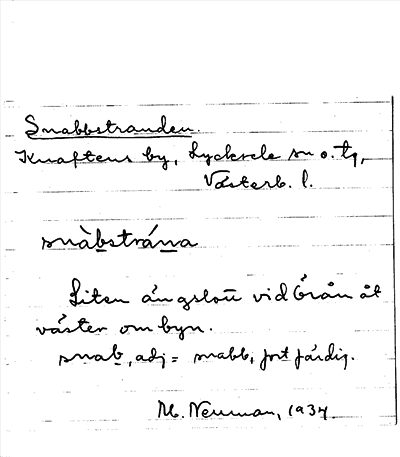 Snabbstranden.
Knaftens by, Lycksele sn o. tg,
Västerb. l.
snàbstrána
Liten ängslott vid Örån åt
väster om byn.
snab, adj = snabb, fort färdig.
M. Neuman, 1937